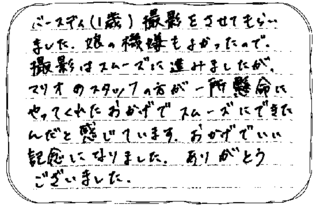 バースデイ(1歳)撮影をさせてもらい
ました。娘の機嫌もよかったので、
撮影はスムーズに進みましたが、
マリオのスタッフの方が一所懸命に
やってくれたおかげでスムーズにできた
んだと感じています。おかげでいい
記念になりました。ありがとう
ございました。